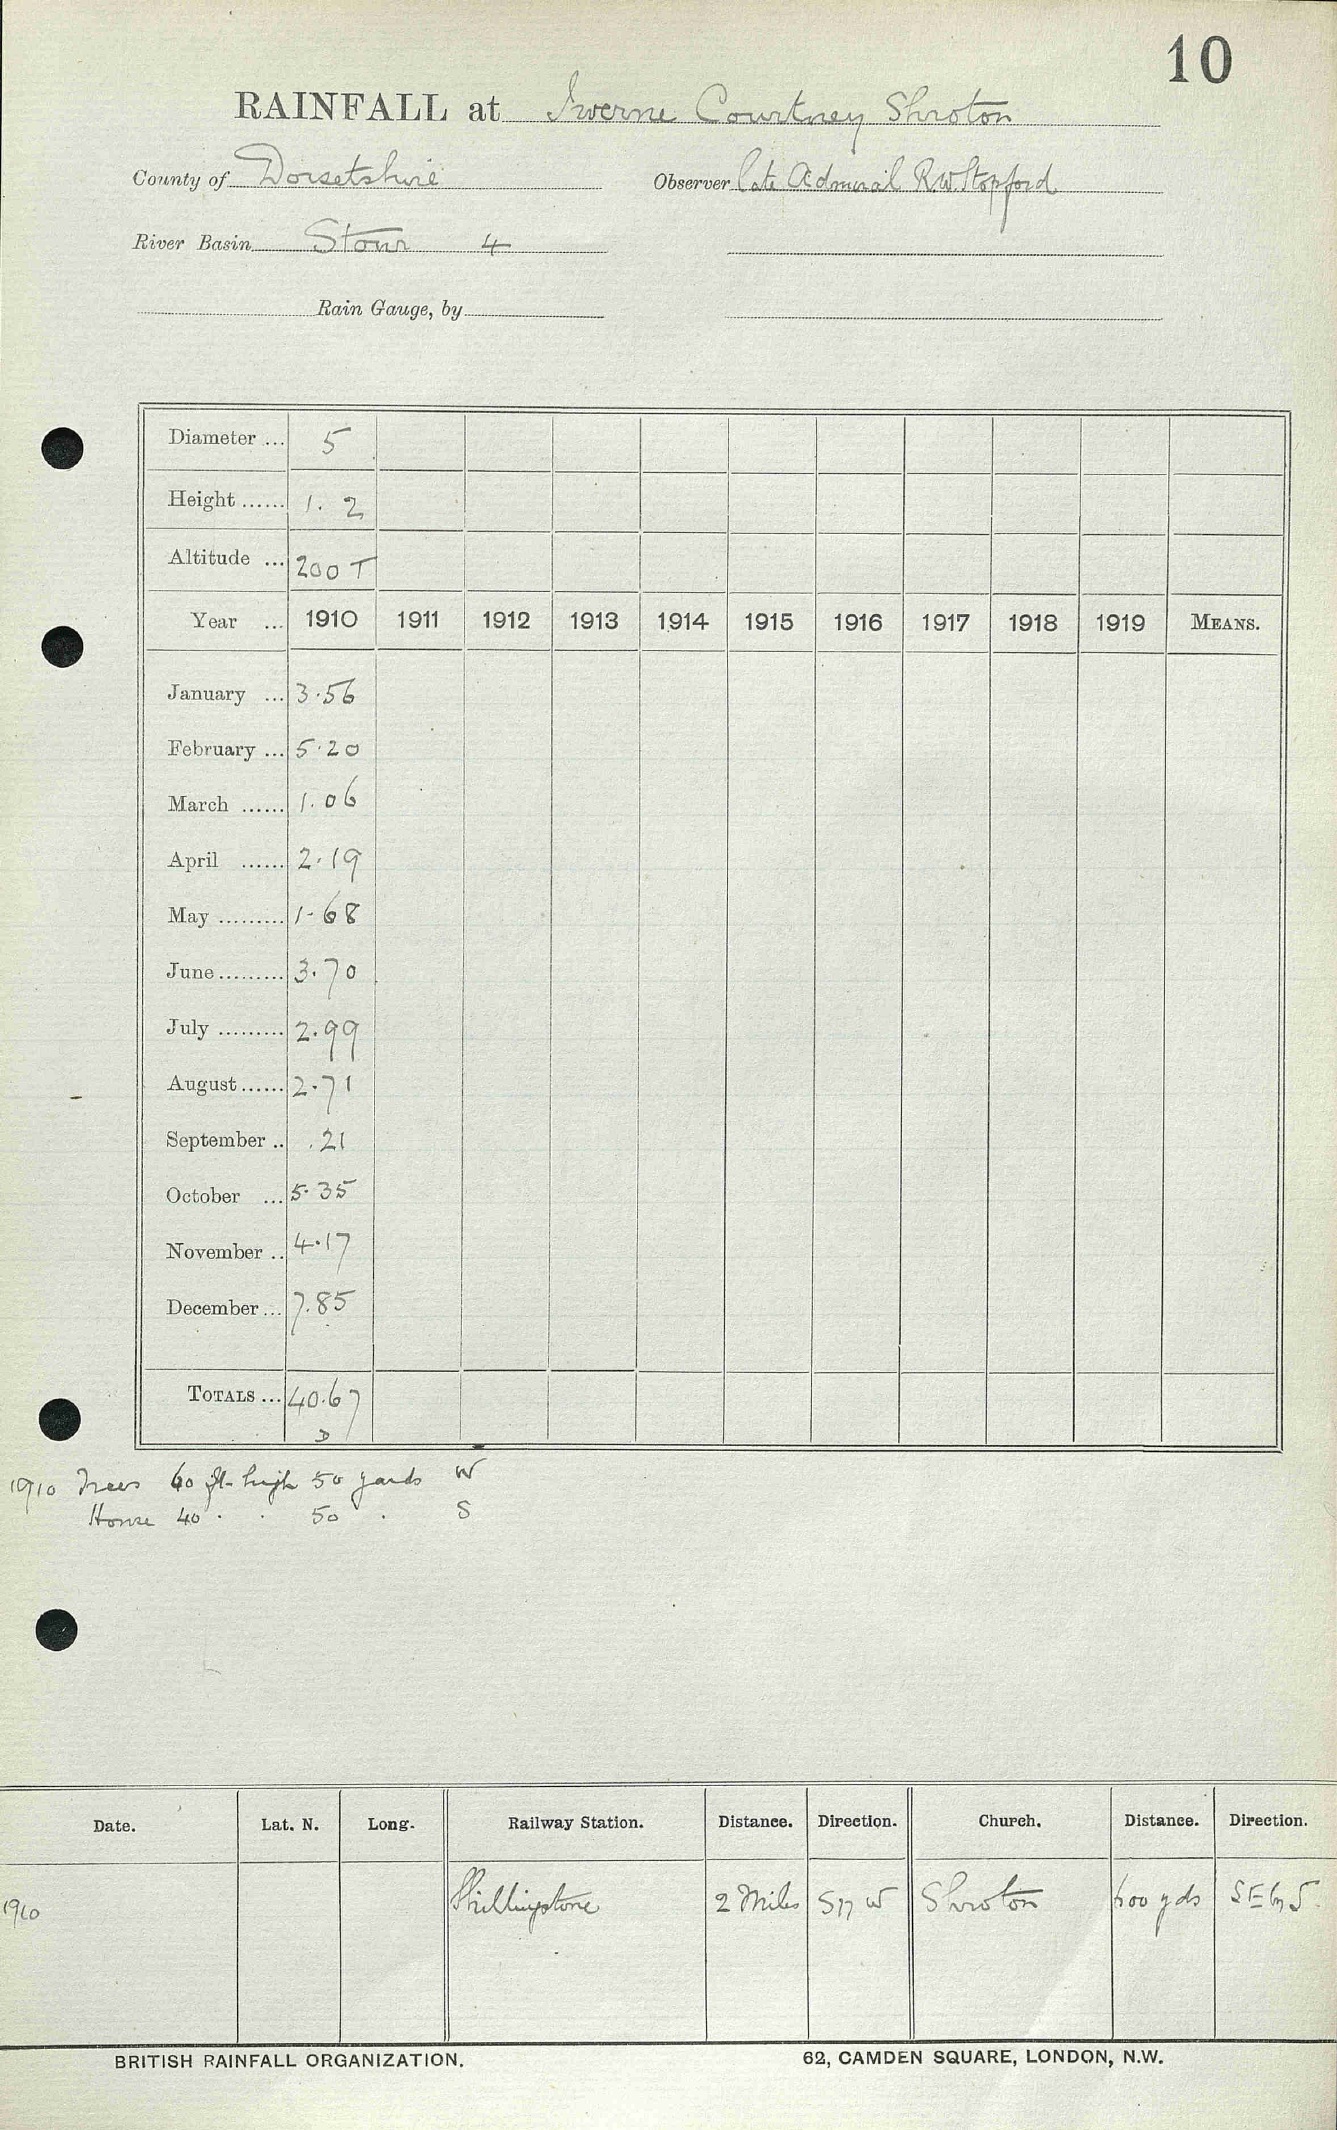 10
RAINFALL at Iwerne Courtney Shroton
County of Dorsetshire Observer late Admiral R.W. Stopford
River Basin Stour 4
Rain Gauge, by
Diameter ... 5
Height ...... 1. 2
Altitude ... 200 T
Year ... 1910 1911 1912 1913 1914 1915 1916 1917 1918 1919 MEANS.
January ... 3.56
February ... 5.20
March ...... 1.06
April ...... 2.19
May ......... 1.68
June ......... 3.70
July ......... 2.99
August ...... 2.71
September .. .21
October ... 5.35
November .. 4.17
December ... 7.85
TOTALS ... 40.67
D
1910 Trees 60 ft high 50 yards W
House 40 . . 50 . S
Date. Lat. N. Long. Railway Station. Distance. Direction. Church. Distance. Direction.
1910 Shillingstone 2 Miles W Shroton 600 yds SE by S.
BRITISH RAINFALL ORGANIZATION. 62, CAMDEN SQUARE, LONDON, N.W.